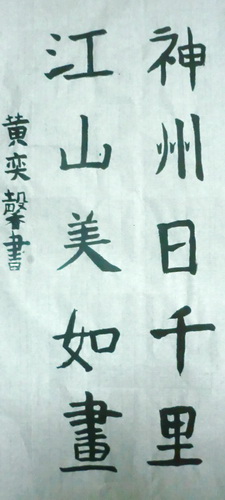 神州日千里
江山美如畫
黄奕馨書